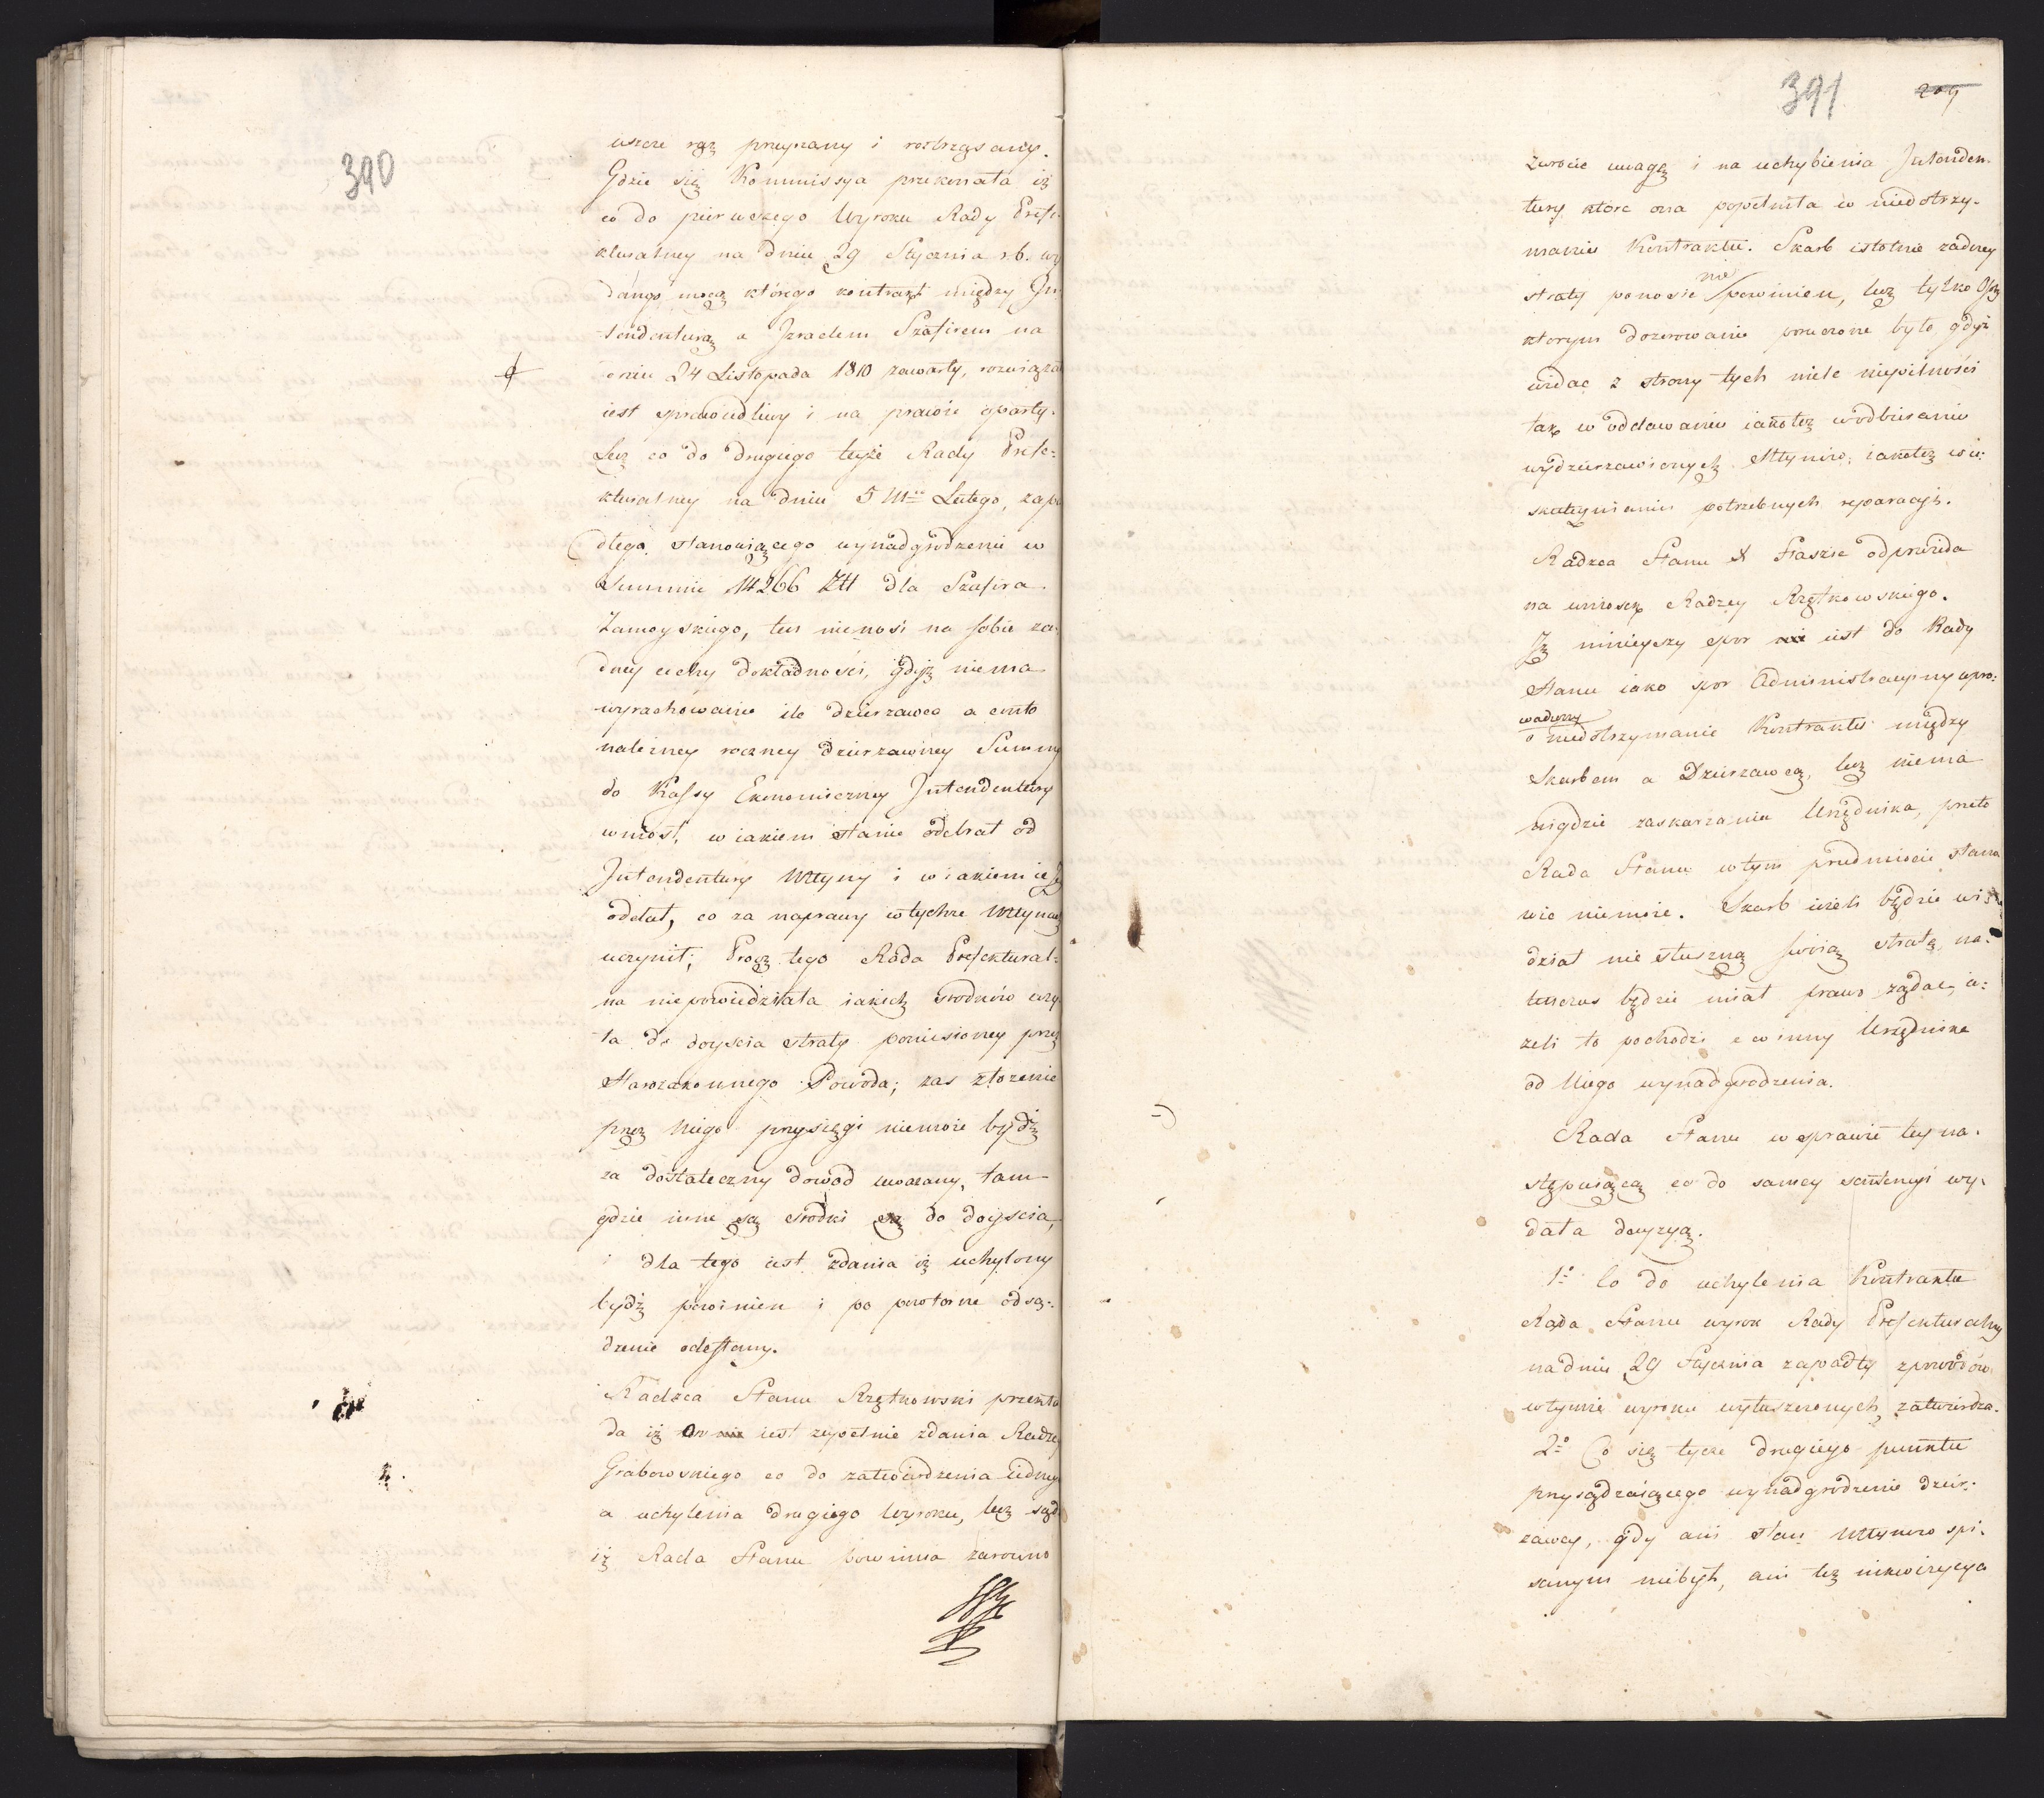 390
ieszcze raz przeyrzany i roztrząsany.
Gdzie się Kommissya przekonała iż
co do pierwszego Wyroku Rady Prefe-
kturalney na dniu 29 Stycznia r. b. wy
danego mocą którego kontrakt między In
tendenturą a Izraelem Szafirem na
dniu 24 Listopada 1810 zawarty, rozwiązał
iest sprawiedliwy i na prawie oparty.
Lecz co do drugiego teyże Rady Prefe=
kturalney na dniu 5 Lutego, zapa
dłego stanowiącego wynadgrodzenie w
Summie 14266 Złł dla Szafira
Zamoyskiego, ten nienosi na sobie ża-
dney cechy dokładności, gdyż niema
wyrachowania ile dzierzawca a conto
należney roczney dzierzawney Summy
do Kassy Ekonomiczney Intendentury
wniosł, w iakiem stanie odebrał od
Intendentury Młyny i w iakiem ie
oddał, co za naprawy w tychże Młynach
uczynił; Procz tego Rada Prefektural=
na niepowiedziała iakich srodków uży
ła do doyscia straty poniesioney przez
Starozakonnego Powoda; zas złożenie
przez Niego przysięgi niemoże bydź
za dostateczny dowod uważany, tam
gdzie inne są srodki do doyscia,
i dla tego iest zdania iż uchylony
bydź powinien i po powtorne odsą-
dzenie odesłany.
Radzca Stanu Rzętkowski przekła
da iż On iest zupełnie zdania Radzcy
Grabowskiego co do zatwierdzenia iednego
a uchylenia drugiego Wyroku, lecz sądzi
iż Rada Stanu powinna zarowno
391
209
zwrocić uwagę i na uchybienia Intenden-
tury które ona popełniła w niedotrzy-
maniu Kontraktu. Skarb istotnie żadney
straty ponosić nie powinien, lecz tylko Ci
ktorym dozorowanie poruczone było gdyż
widać z strony tych wiele niepilności
tak w oddawaniu iakoteż w odbieraniu
wydzierzawionych Młynów, iakoteż w u-
skutecznieniu potrzebnych reparacyi.
Radzca Stanu X Staszic odpowiada
na wniosek Radzcy Rzętkowskiego.
Iż ninieyszy spor iest do Rady
Stanu iako spor Administracyiny wpro=
wadzony
o niedotrzymanie Kontraktu między
Skarbem a Dzierzawcą, lecz niema
nigdzie zaskarzenia Urzędnika, przeto
Rada Stanu w tym przedmiocie stano
wić niemoże. Skarb ieżeli będzie wi-
dział niesłuszną swoią stratę na-
tenczas będzie miał prawo żądać, ie=
żeli to pochodzi z winy Urzędnika
od Niego wynadgrodzenia.
Rada Stanu w sprawie tey na-
stępuiącą co do samey sentencyi wy-
dała decyzyą.
1o Co do uchylenia Kontraktu
Rada Stanu wyrok Rady Prefekturalney
na dniu 29 Stycznia zapadły z powodów
w tymże wyroku wyłuszczonych, zatwierdza.
2o Co się tycze drugiego punktu
przysądzaiącego wynadgrodzenie dzier-
zawcy, gdy ani stan Młynow spi-
sanym niebył, ani też inkwizycya